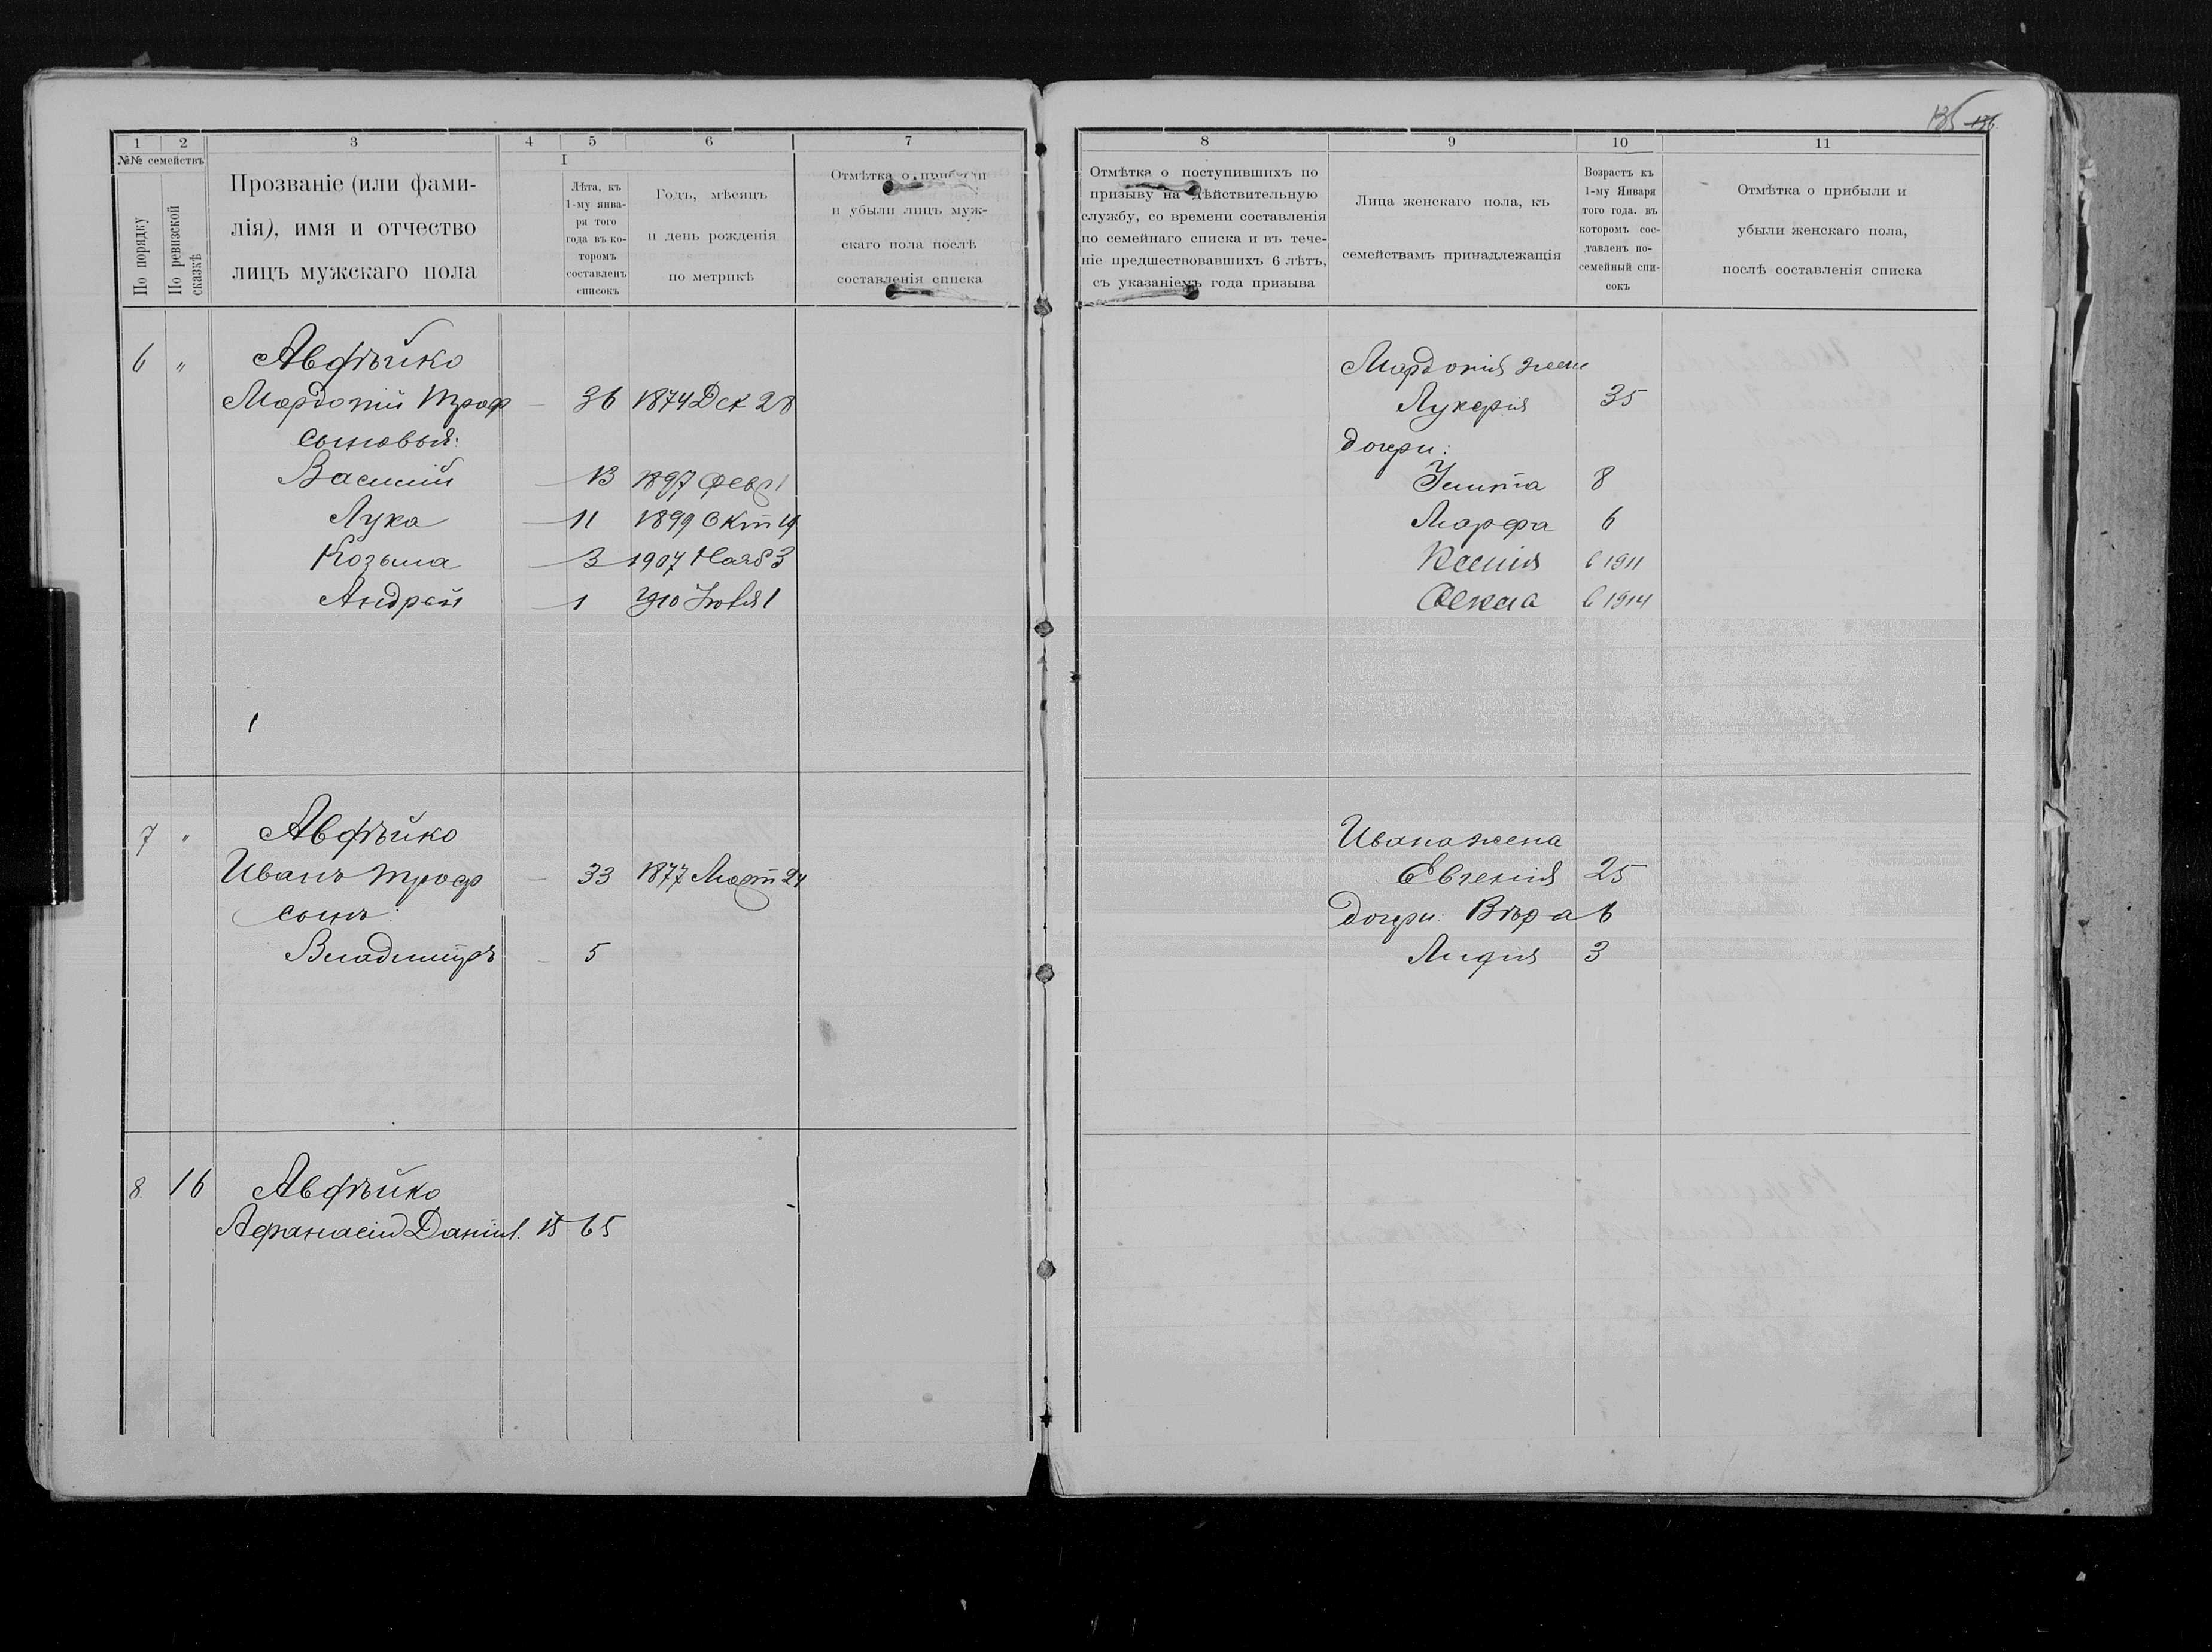 135 136
1 2 3 4 5 6 7
№№ семействъ
По порядку
По ревизской сказкѣ
Прозваніе (или фами-
лія), имя и отчество
лицъ мужскаго пола
I
Лѣта, къ
1-му янва-
ря того
года въ ко-
торомъ
составленъ
списокъ
Годъ, мѣсяцъ
и день рожденія
по метрикѣ
Отмѣтка о прибыли
и убыли лицъ муж-
скаго пола послѣ
составленія списка
6 " Авфѣйко
Мардоній Троф — 36 1874 Дек 28
сыновья:
Василій — 13 1897 Февр 1
Лука — 11 1899 Окт 19
Козьма — 3 1907 Нояб 3
Андрей — 1 1910
7 " Авфѣйко
Иванъ Троф — 33 1877 Март 24
сынъ:
Владиміръ — 5
8. 16 Авфѣйко
Афанасій Даніил. 15 65
8 9 10 11
Отмѣтка о поступившихъ по
призыву на дѣйствительную
службу, со времени составленія
по семейнаго списка и въ тече-
ніе предшествовавшихъ 6 лѣтъ,
съ указаніемъ года призыва
Лица женскаго пола, къ
семействамъ принадлежащія
Возрастъ къ
1-му Января
того года. въ
которомъ сос-
тавленъ по-
семейный спи-
сокъ
Отмѣтка о прибыли и
убыли женскаго пола,
послѣ составленія списка
Мардонія жена
Лукерія 35
дочери:
Улита 8
Марфа 6
Ксенія в 1911
Фекла в 1914
Ивана жена
Евгенія 25
дочери: Вѣра 6
Лидія 3